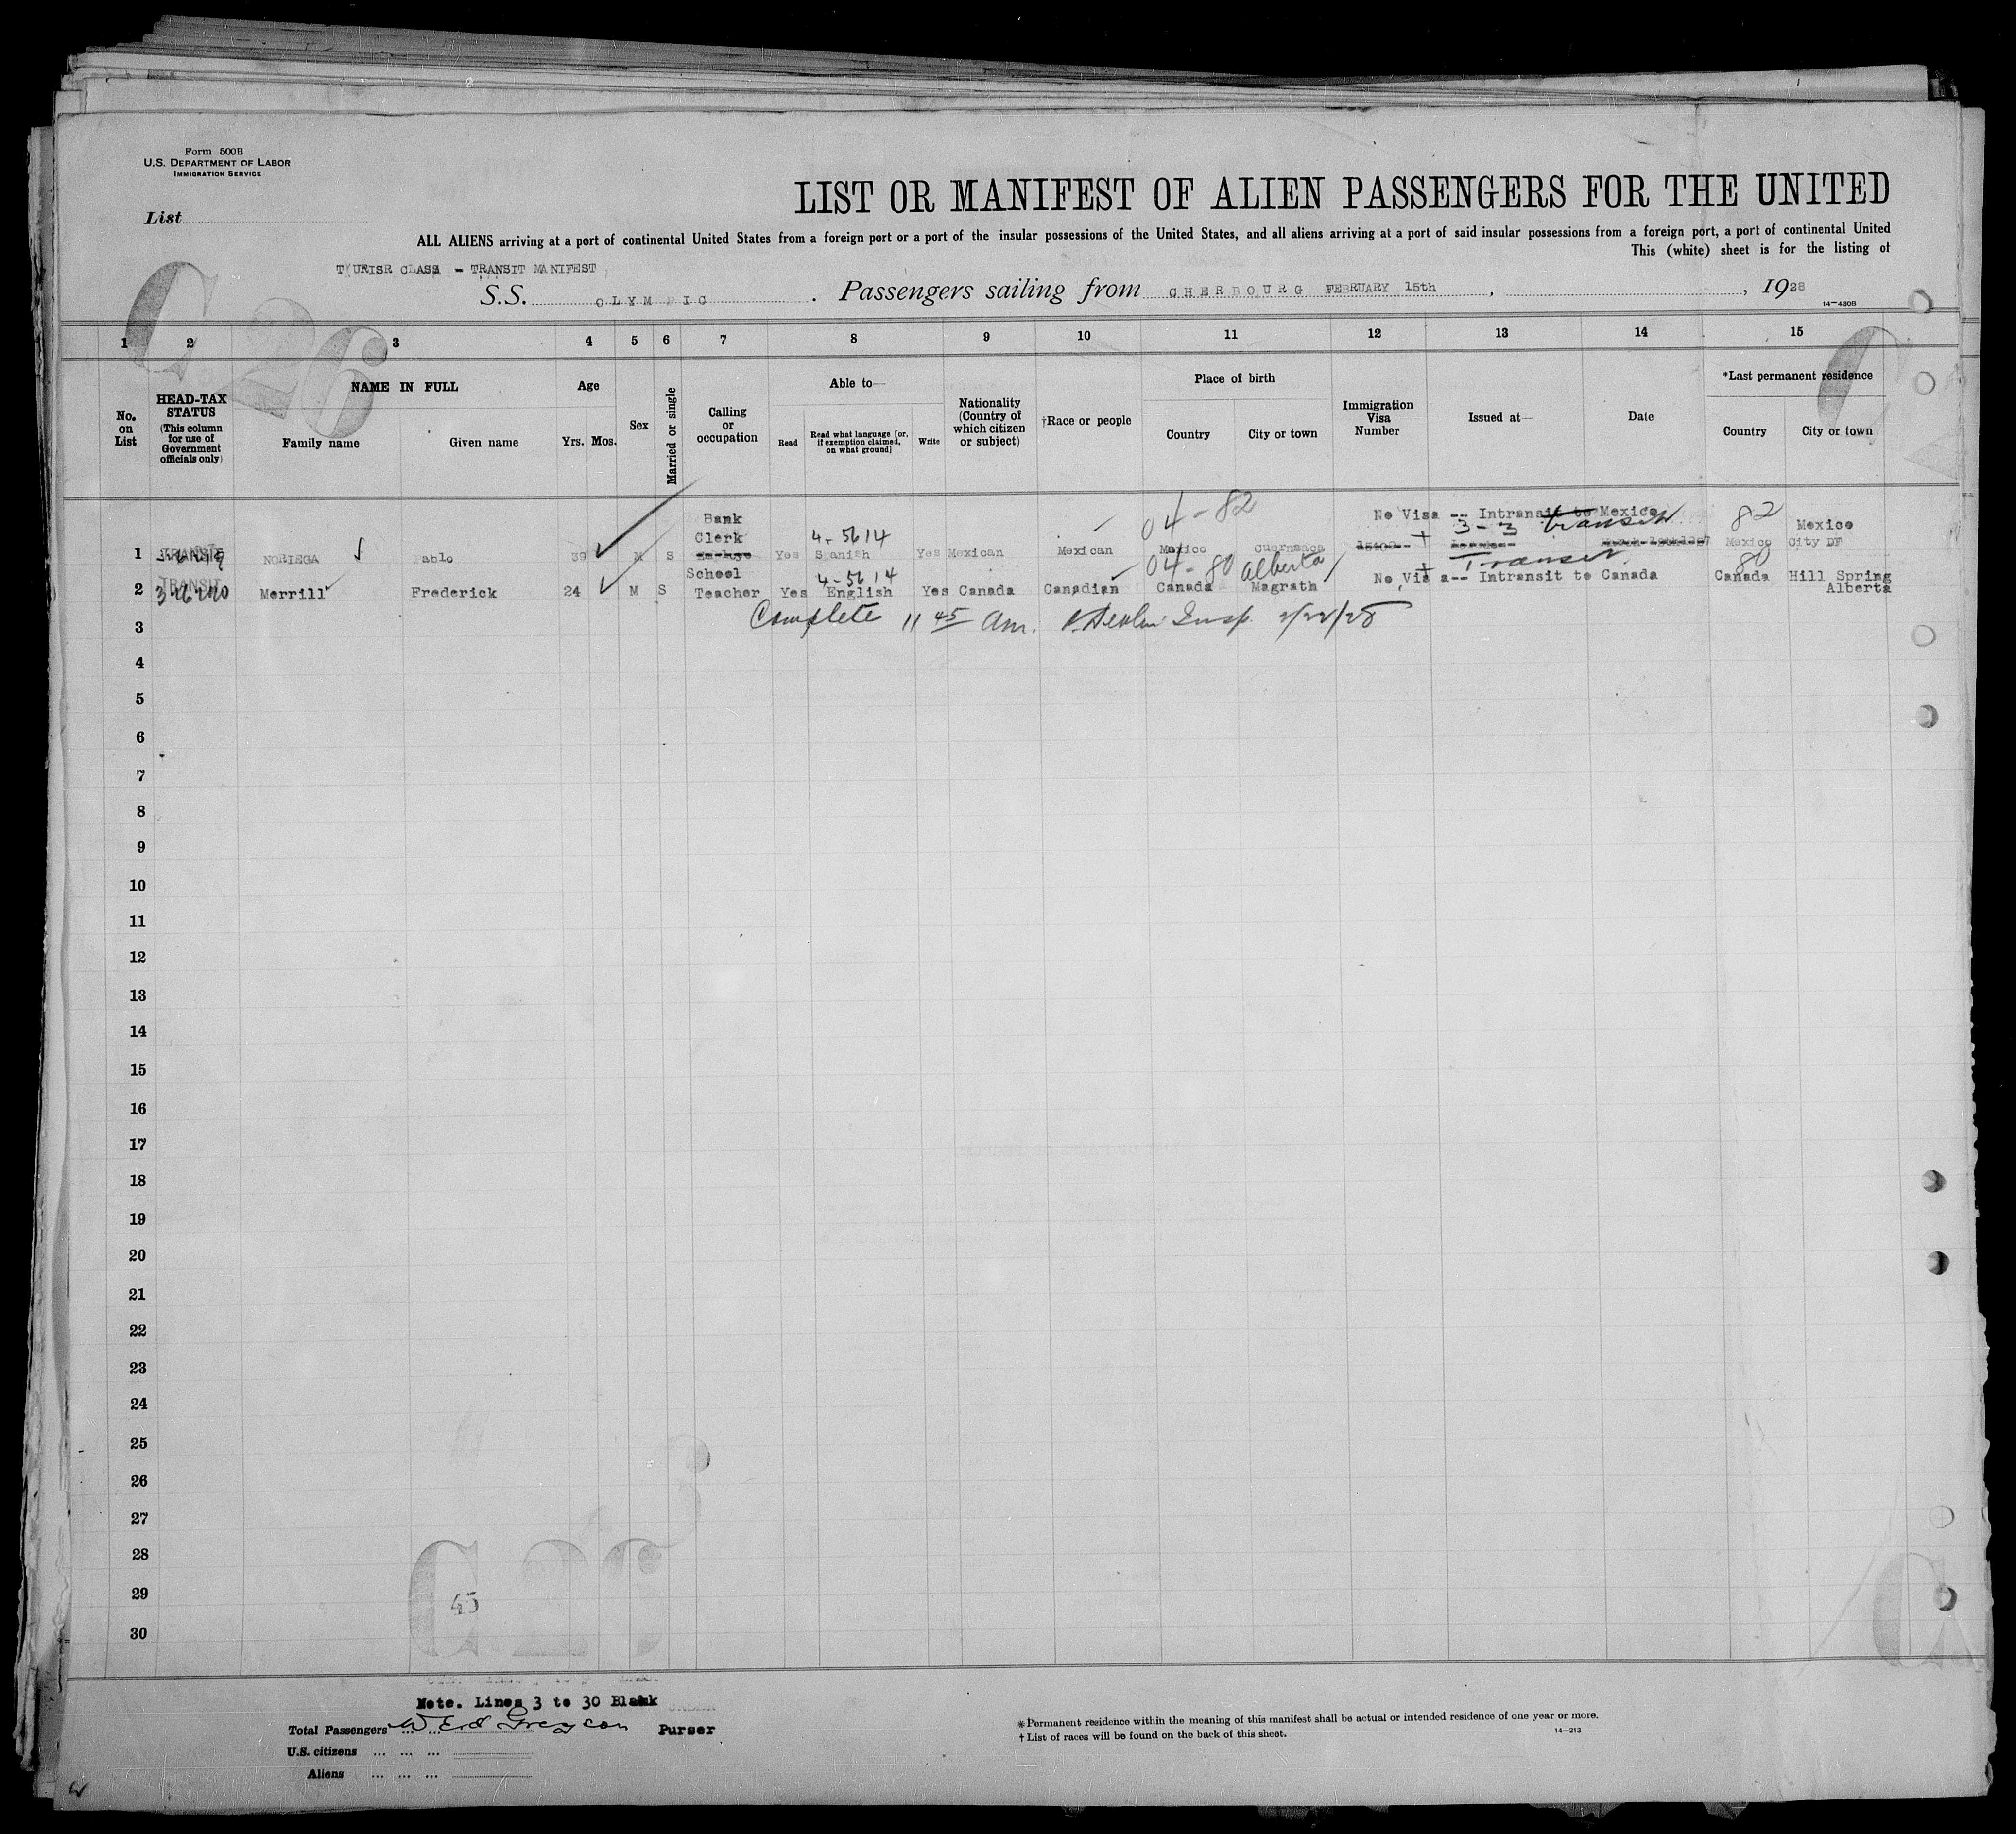 Form 500B
U.S. DEPARTMENT OF LABOR
IMMIGRATION SERVICE
List
LIST OR MANIFEST OF ALIEN PASSENGERS FOR THE UNITED
ALL ALIENS arriving at a port of continental United States from a foreign port or a port of the insular possessions of the United States, and all aliens arriving at a port of said insular possessions from a foreign port, a port of continental United
This (white) sheet is for the listing of
TOURISR CLASS - TRANSIT MANIFEST
S.S. OLYMPIC. Passengers sailing from CHERBOURG FEBRUARY 15th, , 1928
14-430B
C 26
C
1 2 3 4 5 6 7 8 9 10 11 12 13 14 15
No. on List
HEAD-TAX STATUS (This column for use of Government officials only)
NAME IN FULL
Family name Given name
Age
Yrs. Mos.
Sex
Married or single
Calling or occupation
Able to—
Read
Read what language [or, if exemption claimed, on what ground]
Write
Nationality (Country of which citizen or subject)
†Race or people
Place of birth
Country City or town
Immigration Visa Number
Issued at—
Date
*Last permanent residence
Country City or town
04-82 No Visa -- Intransit to Mexico 82
Bank Clerk 4-5614 3-3 transit Mexico
1 TRANSIT NORIEGA Pablo 39 M S Yes Spanish Yes Mexican Mexican Mexico Cuernaaca Mexico City DF
TRANSIT School 4-5614 04-80 Alberta Transit 80
2 Merrill Frederick 24 M S Teacher Yes English Yes Canada Canadian Canada Magrath No Visa-- Intransit to Canada Canada Hill Spring Alberta
Complete 11 45 Am. Insp. 2/22/28
3
4
5
6
7
8
9
10
11
12
13
14
15
16
17
18
19
20
21
22
23
24
25
26
27
28
29
30
45
Note. Lines 3 to 30 Blank
Total Passengers ... ... Purser
U.S. citizens ... ... ...
Aliens ... ... ...
* Permanent residence within the meaning of this manifest shall be actual or intended residence of one year or more.
† List of races will be found on the back of this sheet.
14-213
W